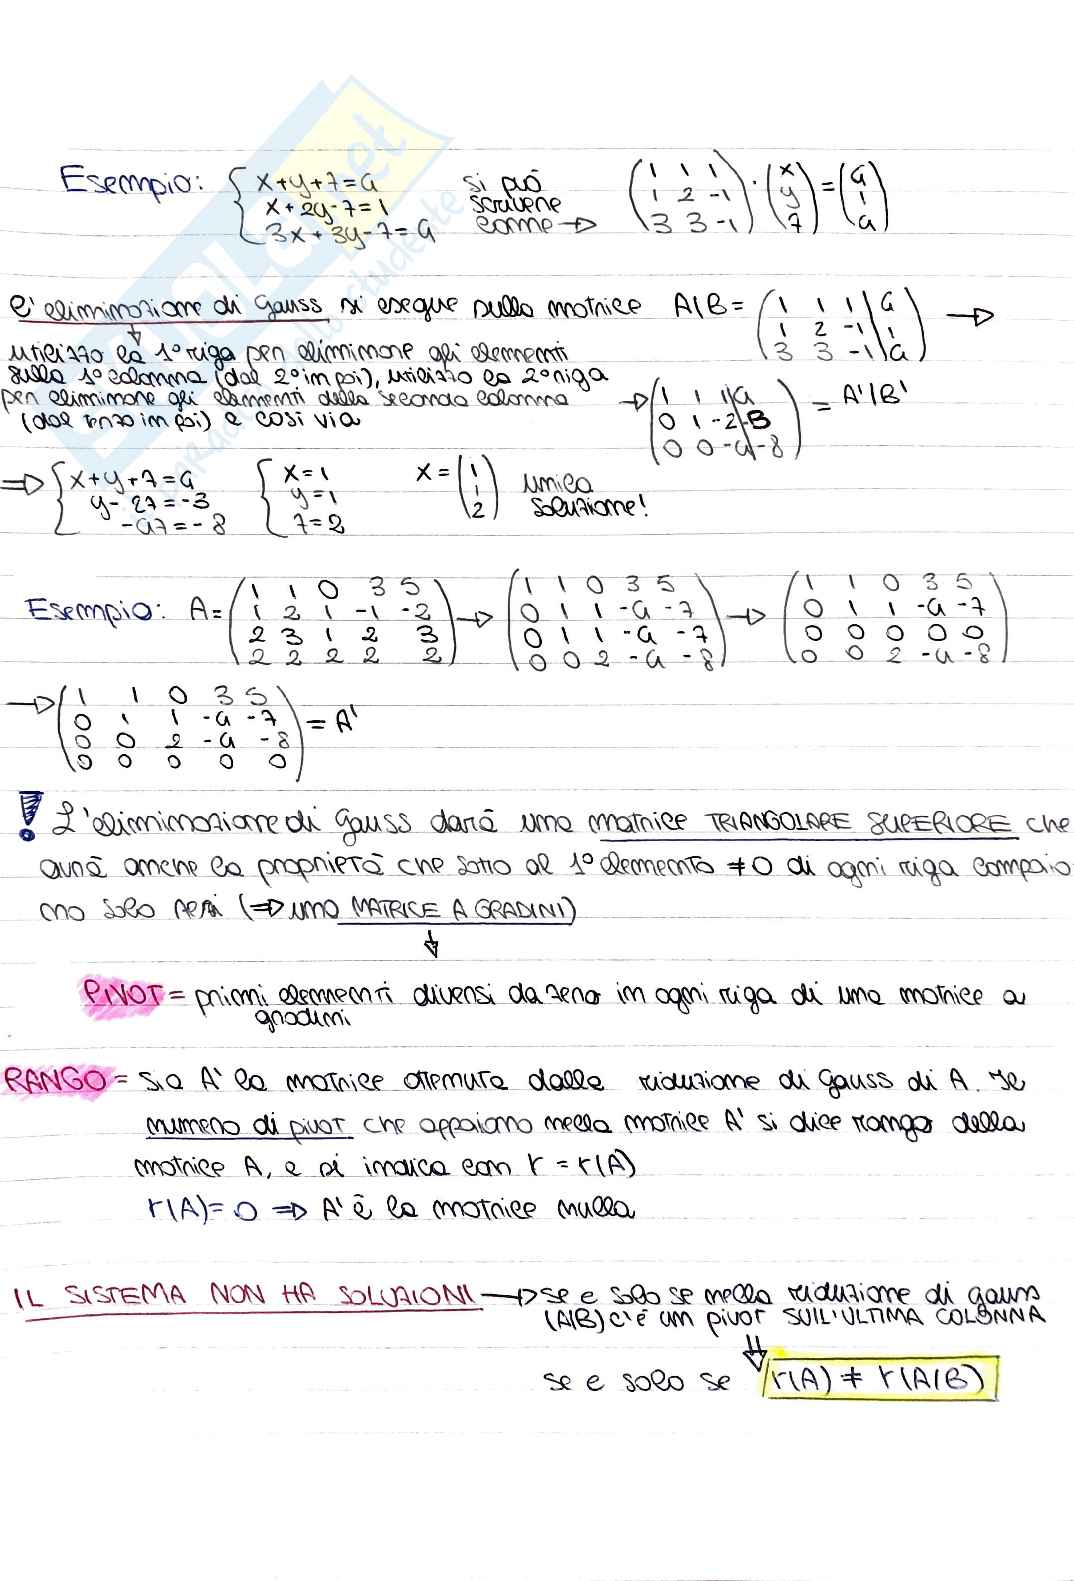 Esempio: { x+y+z=4 si può (1 1 1) · (x) = (4)
x+2y-z=1 scrivere (1 2 -1) (y) (1)
3x+3y-z=4 come → (3 3 -1) (z) (4)
L'eliminazione di Gauss si esegue sulla matrice A|B = (1 1 1 | 4) →
(1 2 -1 | 1)
(3 3 -1 | 4)
utilizzo la 1° riga per eliminare gli elementi
sulla 1° colonna (dal 2° in poi), utilizzo la 2° riga
per eliminare gli elementi della seconda colonna
(dal terzo in poi) e così via
→ (1 1 1 | 4) = A'|B'
(0 1 -2 | -3)
(0 0 -4 | -8)
⇒ { x+y+z=4 { x=1 x = (1) unica
y-2z=-3 y=1 (1) soluzione!
-4z=-8 z=2 (2)
Esempio: A = (1 1 0 3 5) → (1 1 0 3 5) → (1 1 0 3 5)
(1 2 1 -1 -2) (0 1 1 -4 -7) (0 1 1 -4 -7)
(2 3 1 2 3) (0 1 1 -4 -7) (0 0 0 0 0)
(2 2 2 2 2) (0 0 2 -4 -8) (0 0 2 -4 -8)
→ (1 1 0 3 5) = A'
(0 1 1 -4 -7)
(0 0 2 -4 -8)
(0 0 0 0 0)
! L'eliminazione di Gauss darà una matrice TRIANGOLARE SUPERIORE che
avrà anche la proprietà che sotto al 1° elemento ≠0 di ogni riga compaio
no solo zeri (⇒ una MATRICE A GRADINI)
↓
PIVOT = primi elementi diversi da zero in ogni riga di una matrice a
gradini
RANGO = Sia A' la matrice ottenuta dalla riduzione di Gauss di A. Il
numero di pivot che appaiono nella matrice A' si dice rango della
matrice A, e si indica con r = r(A)
r(A)= 0 ⇒ A' è la matrice nulla
IL SISTEMA NON HA SOLUZIONI → se e solo se nella riduzione di gauss
(A|B) c'è un pivot SULL'ULTIMA COLONNA
⇓
se e solo se r(A) ≠ r(A|B)